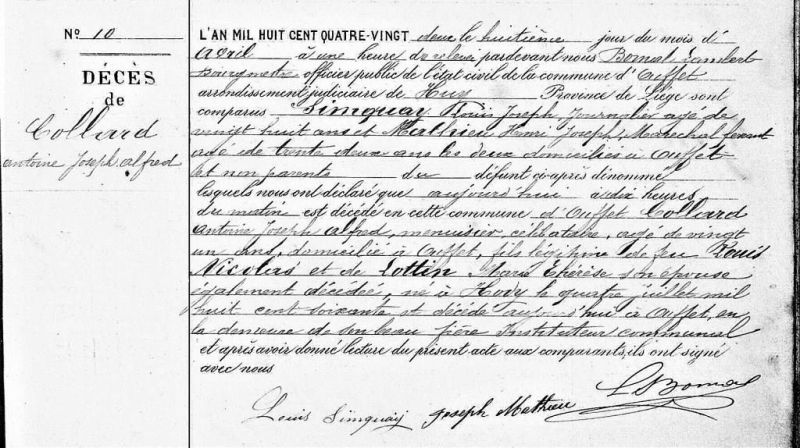 N° 10
DÉCÈS
de
Collard
antoine Joseph alfred
L'AN MIL HUIT CENT QUATRE-VINGT deux le huitième jour du mois d'
avril à une heure de relevée pardevant nous Bomal Lambert
Bourgmestre officier public de l'état civil de la commune d'Ouffet
arrondissement judiciaire de Huy Province de Liège sont
comparus Simquay Louis Joseph, Journalier agé de
vingt huit ans et Mathieu Henri Joseph, Maréchal ferrant
agé de trente deux ans les deux domiciliés à Ouffet
et non parents du défunt ci-après dénommé
lesquels nous ont déclaré que aujourd'hui à dix heures
du matin est décédé en cette commune d'Ouffet Collard
antoine Joseph alfred, menuisier, célibataire, agé de vingt
un ans, domicilié à Ouffet, fils légitime de feu Louis
Nicolas et de Lottin Marie Thérèse son épouse
également décédée, né à Hody le quatre juillet mil
huit cent soixante et décédé aujourd'hui à Ouffet, en
la demeure de son beau frère Instituteur communal
et après avoir donné lecture du présent acte aux comparants, ils ont signé
avec nous
L Bomal
Louis Simquay Joseph Mathieu